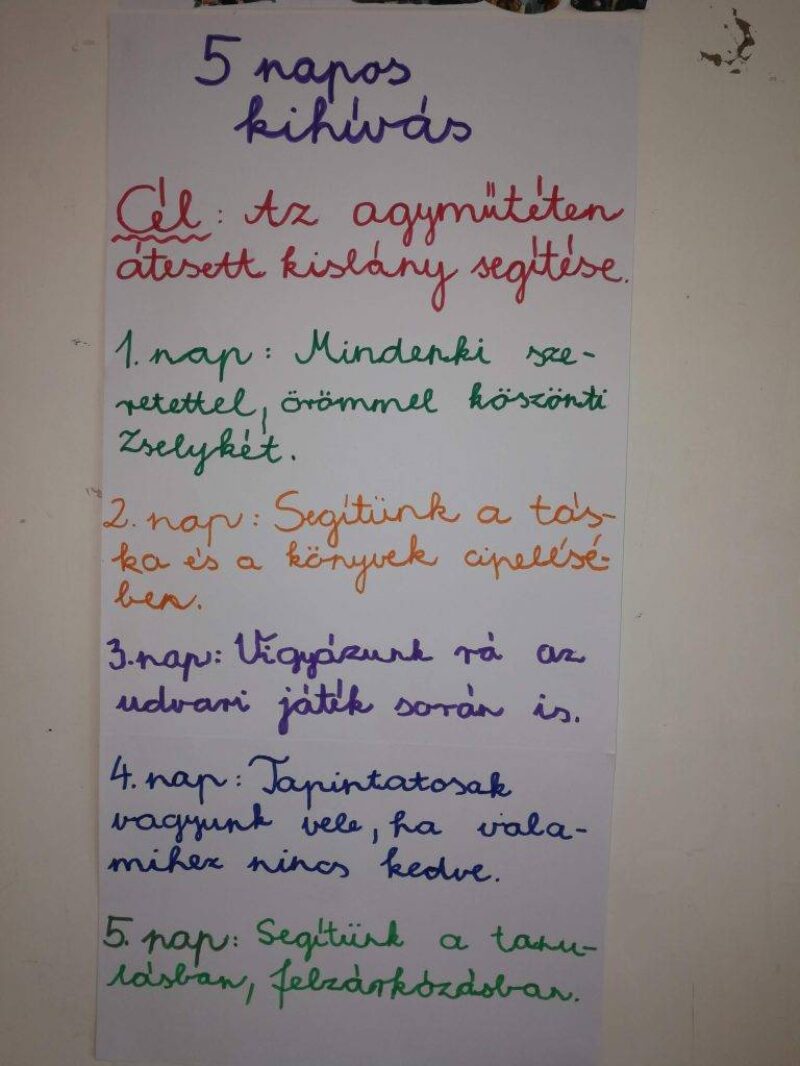 5 napos
kihívás
Cél: Az agyműtéten
átesett kislány segítése.
1. nap: Mindenki sze-
retettel, örömmel köszönti
Zselykét.
2. nap: Segítünk a tás-
ka és a könyvek cipelésé-
ben.
3. nap: Vigyázunk rá az
udvari játék során is.
4. nap: Tapintatosak
vagyunk vele, ha vala-
mihez nincs kedve.
5. nap: Segítünk a tanu-
lásban, felzárkózásban.